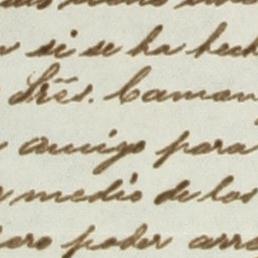 si se ha hech
Sres. Caman
amigo para
medio de los
ero poder arre